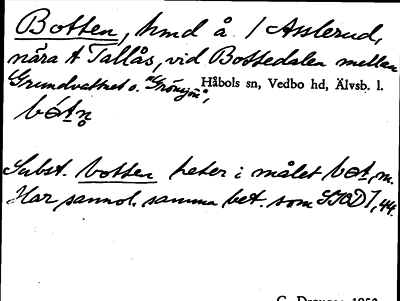 Botten, hmd å 1 Asslerud,
nära t Tallås, vid Bottedalen mellan
Grundvattnet o. "Grönsjön",
Håbols sn, Vedbo hd, Älvsb. l.
bót n̥
Subst. botten heter i målet bót, m.
Har sannol. samma bet. som SIOD 7, 44.